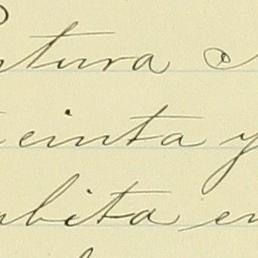 ntura
einta y
bita en